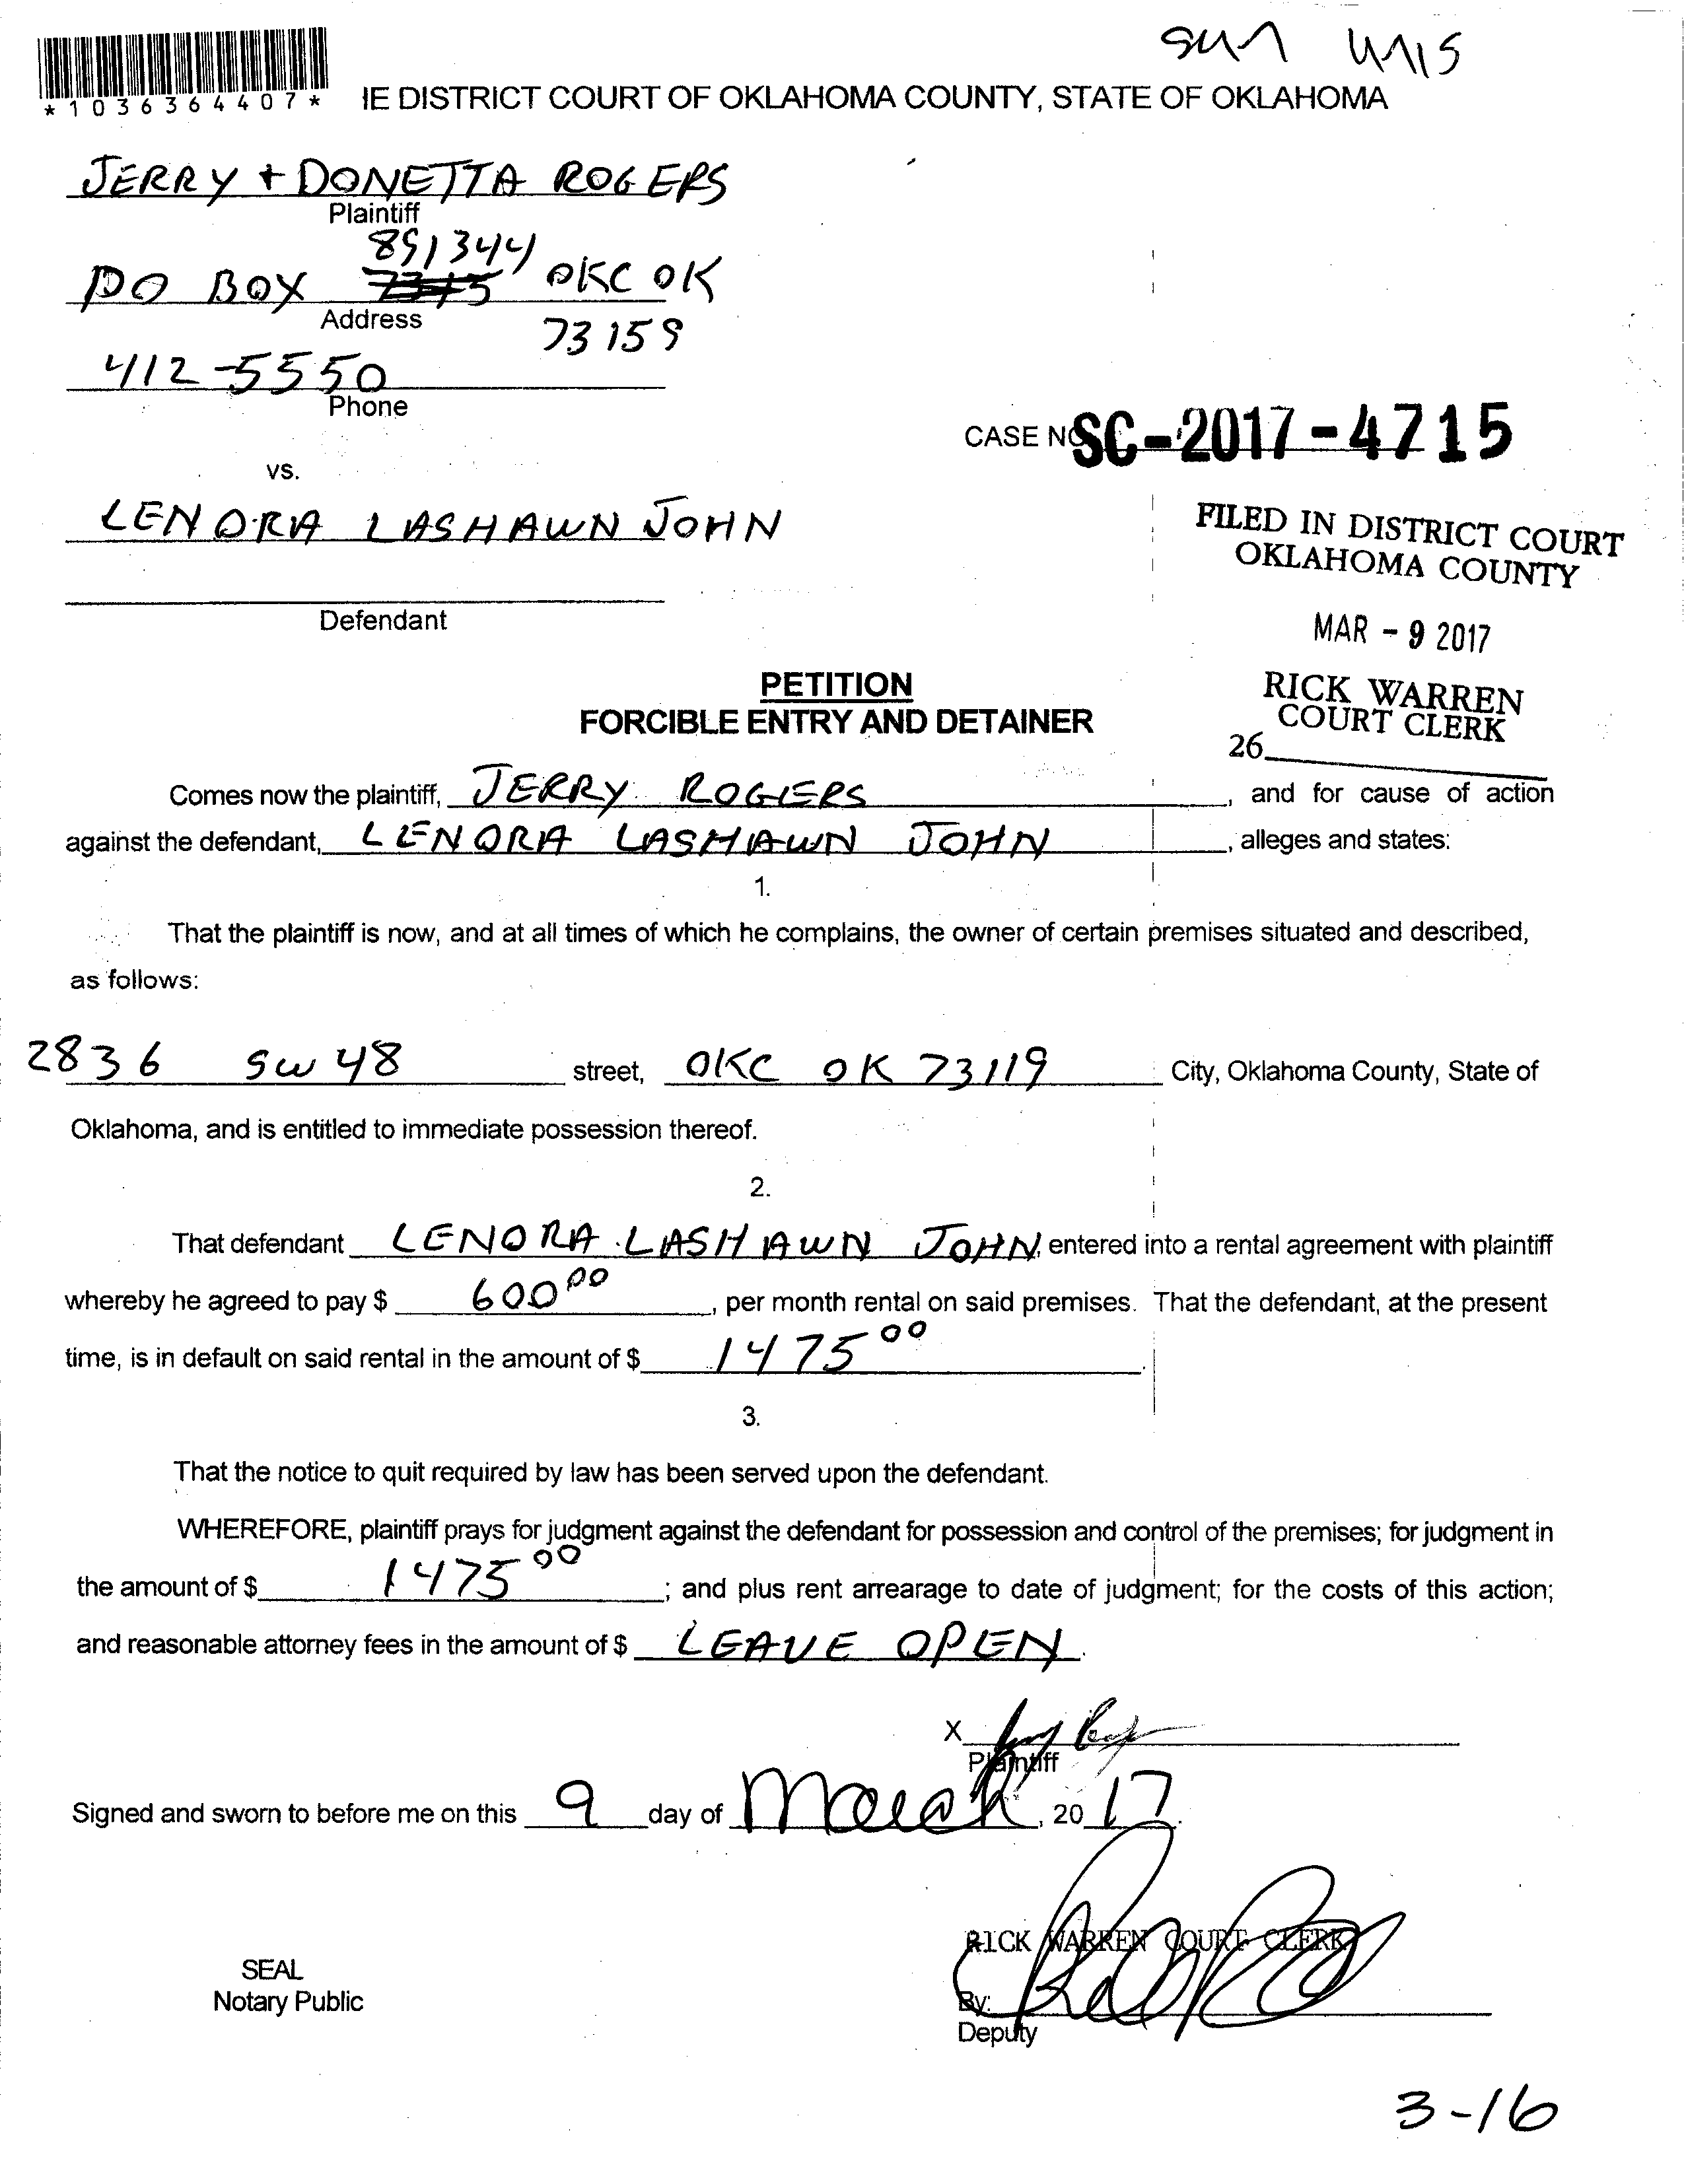 *1036364407*
IE DISTRICT COURT OF OKLAHOMA COUNTY, STATE OF OKLAHOMA
JERRY + DONETTA ROGERS
Plaintiff
891344
PO BOX OKC OK
Address
73159
412-5550
Phone
CASE NO SC-2017-4715
vs.
LENORA LASHAWN JOHN
FILED IN DISTRICT COURT
OKLAHOMA COUNTY
Defendant
MAR - 9 2017
PETITION
RICK WARREN
FORCIBLE ENTRY AND DETAINER
COURT CLERK
26
Comes now the plaintiff, JERRY ROGERS, and for cause of action
against the defendant, LENORA LASHAWN JOHN, alleges and states:
1.
That the plaintiff is now, and at all times of which he complains, the owner of certain premises situated and described,
as follows:
2836 SW 48 street, OKC OK 73119 City, Oklahoma County, State of
Oklahoma, and is entitled to immediate possession thereof.
2.
That defendant LENORA LASHAWN JOHN, entered into a rental agreement with plaintiff
whereby he agreed to pay $ 600 00, per month rental on said premises. That the defendant, at the present
time, is in default on said rental in the amount of $ 1475 00.
3.
That the notice to quit required by law has been served upon the defendant.
WHEREFORE, plaintiff prays for judgment against the defendant for possession and control of the premises; for judgment in
the amount of $ 1475 00; and plus rent arrearage to date of judgment; for the costs of this action;
and reasonable attorney fees in the amount of $ LEAVE OPEN.
X
Plaintiff
Signed and sworn to before me on this 9 day of March, 20 17.
RICK WARREN COURT CLERK
SEAL
Notary Public
By:
Deputy
3-16